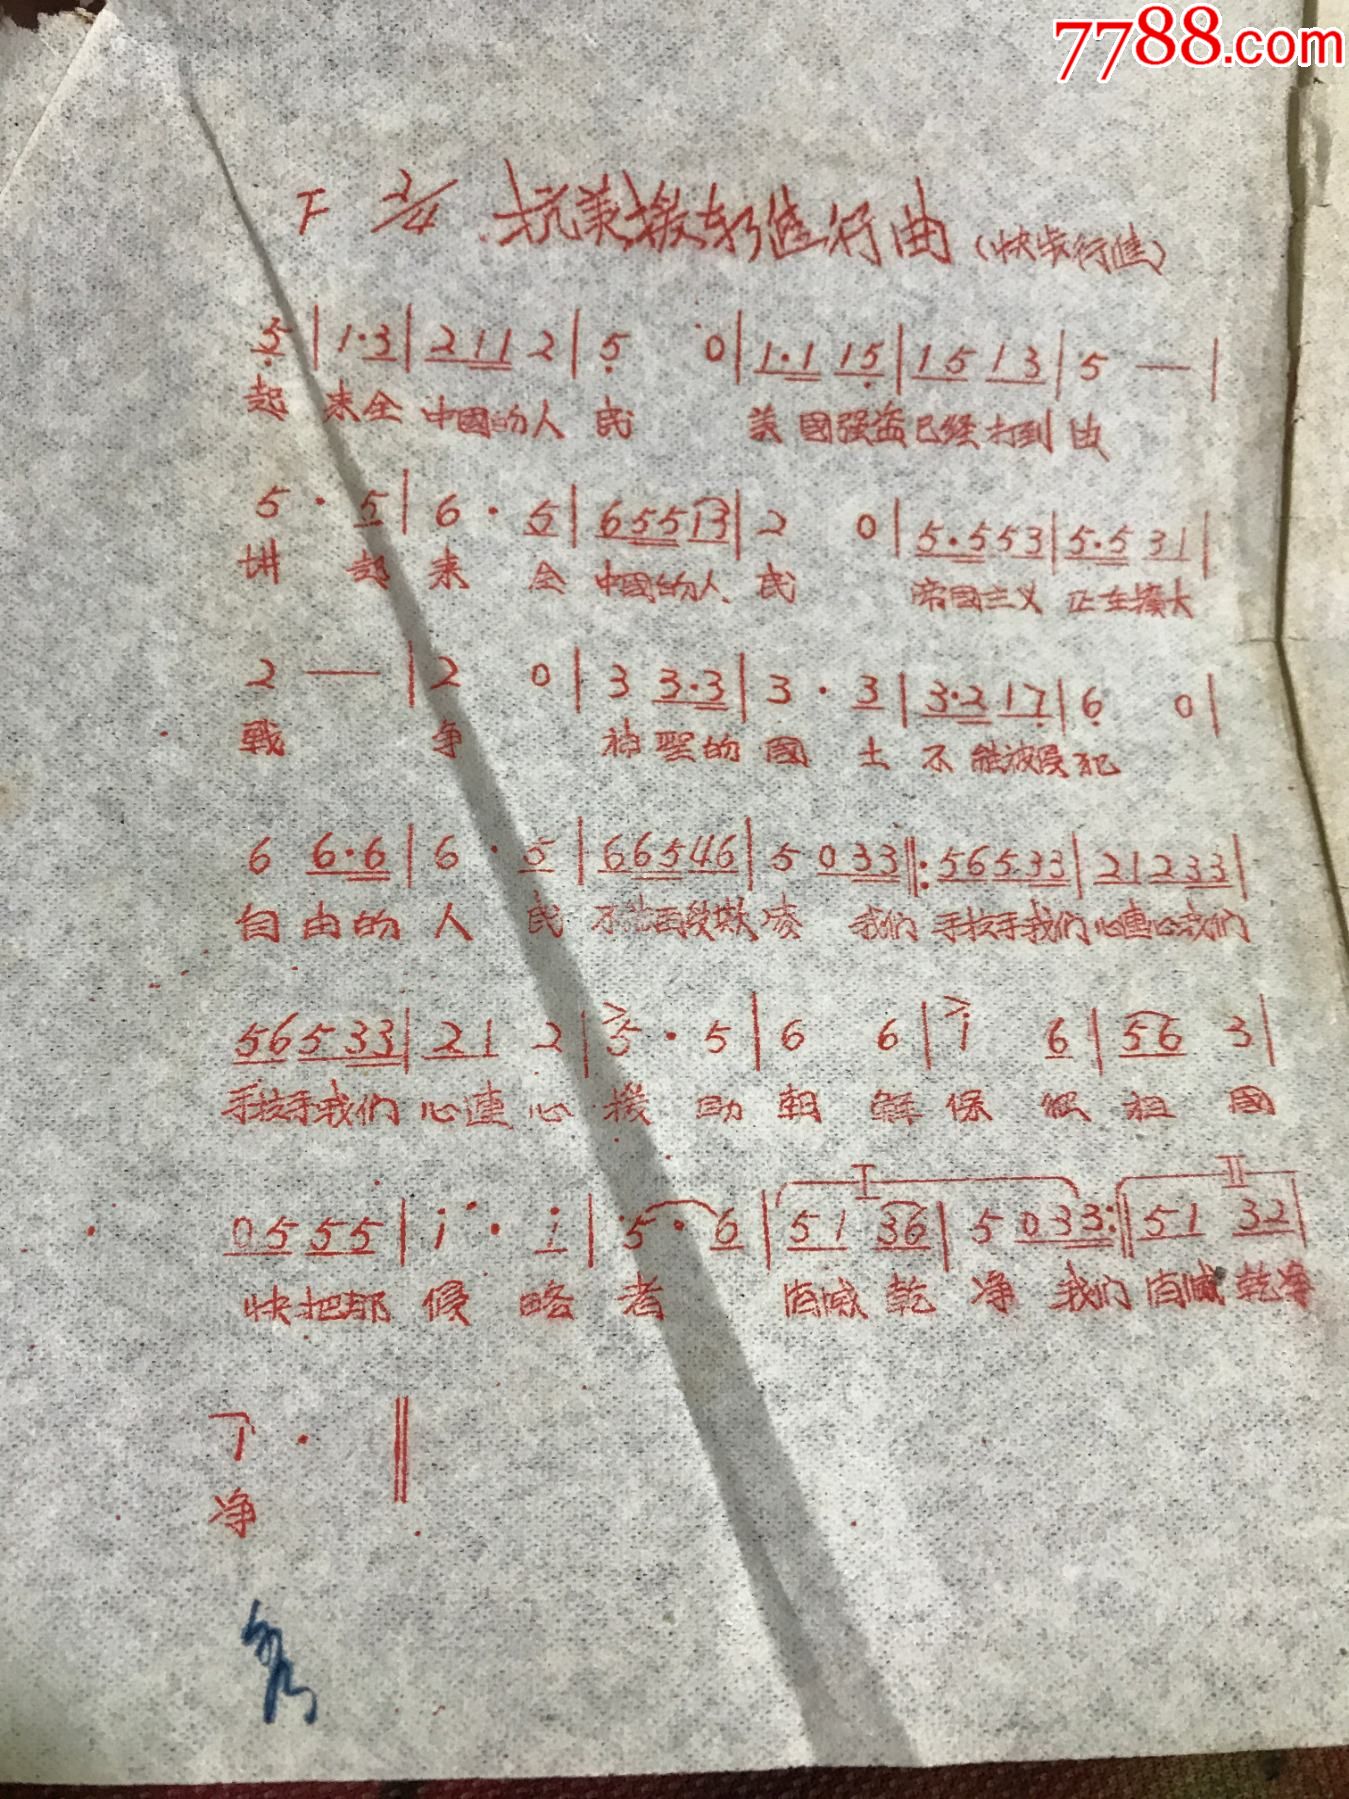 7788.com
F 2/4 抗美援朝進行曲（快步行進）
5 | 1·3 | 2 1 1 2 | 5 0 | 1·1 1 5 | 1 5 1 3 | 5 — |
起 来全 中國的人 民 美國强盗已经打到
5 · 5 | 6 · 5 | 6 5 5 1 3 | 2 0 | 5·5 5 3 | 5·5 3 1 |
起 来 全 中國的人 民 帝國主义 正在擴大
2 — | 2 0 | 3 3·3 | 3 · 3 | 3·2 1 7 | 6 0 |
戰 争 神聖的 國 土 不 能被侵犯
6 6·6 | 6 · 5 | 6 6 5 4 6 | 5 0 3 3 ‖: 5 6 5 3 3 | 2 1 2 3 3 |
自由的 人 民 不能再受欺凌 我们 手拉手我们 心連心我们
5 6 5 3 3 | 2 1 2 | 5 · 5 | 6 6 | i 6 | 5 6 3 |
手拉手我们 心連心 援 助 朝 鮮 保 衛 祖 國
I II
0 5 5 5 | i · i | 5 · 6 | 5 1 3 6 | 5 0 3 3 :‖ 5 1 3 2 |
快把那 侵 略 者 消滅 乾 净 我们 消滅 乾净
1 · ‖
净